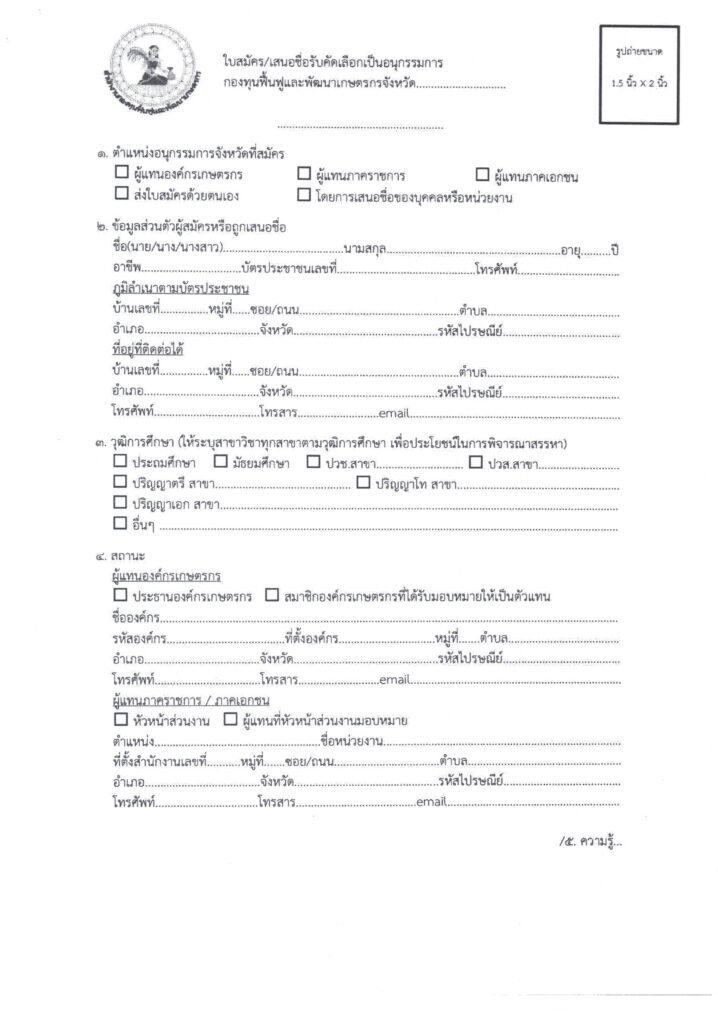 ใบสมัคร/เสนอชื่อรับคัดเลือกเป็นอนุกรรมการ
กองทุนฟื้นฟูและพัฒนาเกษตรกรจังหวัด............................
รูปถ่ายขนาด
1.5 นิ้ว X 2 นิ้ว
สำนักงานกองทุนฟื้นฟูและพัฒนาเกษตรกร
....................................................
๑. ตำแหน่งอนุกรรมการจังหวัดที่สมัคร
☐ ผู้แทนองค์กรเกษตรกร ☐ ผู้แทนภาคราชการ ☐ ผู้แทนภาคเอกชน
☐ ส่งใบสมัครด้วยตนเอง ☐ โดยการเสนอชื่อของบุคคลหรือหน่วยงาน
๒. ข้อมูลส่วนตัวผู้สมัครหรือถูกเสนอชื่อ
ชื่อ(นาย/นาง/นางสาว)......................................นามสกุล......................................................อายุ..........ปี
อาชีพ...............................บัตรประชาชนเลขที่...........................................โทรศัพท์................................
ภูมิลำเนาตามบัตรประชาชน
บ้านเลขที่...............หมู่ที่......ซอย/ถนน..................................................ตำบล..........................................
อำเภอ....................................จังหวัด..............................................รหัสไปรษณีย์....................................
ที่อยู่ที่ติดต่อได้
บ้านเลขที่...............หมู่ที่......ซอย/ถนน..................................................ตำบล..........................................
อำเภอ....................................จังหวัด..............................................รหัสไปรษณีย์....................................
โทรศัพท์.................................โทรสาร..................................email..............................................................
๓. วุฒิการศึกษา (ให้ระบุสาขาวิชาทุกสาขาตามวุฒิการศึกษา เพื่อประโยชน์ในการพิจารณาสรรหา)
☐ ประถมศึกษา ☐ มัธยมศึกษา ☐ ปวช.สาขา........................... ☐ ปวส.สาขา.........................
☐ ปริญญาตรี สาขา.......................................... ☐ ปริญญาโท สาขา..................................................
☐ ปริญญาเอก สาขา............................................................................................................................
☐ อื่นๆ ...............................................................................................................................................
๔. สถานะ
ผู้แทนองค์กรเกษตรกร
☐ ประธานองค์กรเกษตรกร ☐ สมาชิกองค์กรเกษตรกรที่ได้รับมอบหมายให้เป็นตัวแทน
ชื่อองค์กร...............................................................................................................................................
รหัสองค์กร.....................................ที่ตั้งองค์กร..............................หมู่ที่.......ตำบล...................................
อำเภอ....................................จังหวัด..............................................รหัสไปรษณีย์....................................
โทรศัพท์.................................โทรสาร..................................email..............................................................
ผู้แทนภาคราชการ / ภาคเอกชน
☐ หัวหน้าส่วนงาน ☐ ผู้แทนที่หัวหน้าส่วนงานมอบหมาย
ตำแหน่ง....................................................ชื่อหน่วยงาน..........................................................................
ที่ตั้งสำนักงานเลขที่..........หมู่ที่.......ซอย/ถนน..........................................ตำบล.......................................
อำเภอ....................................จังหวัด..............................................รหัสไปรษณีย์....................................
โทรศัพท์................................โทรสาร......................................email......................................................
/๕. ความรู้...